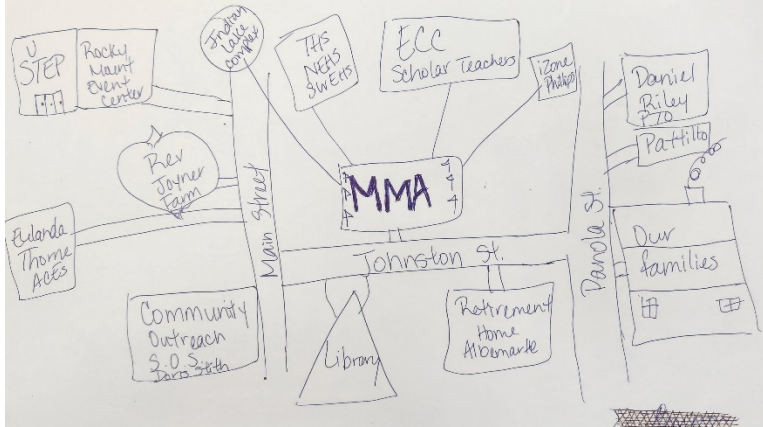 U
STEP
Rocky
Mount
Event
Center
Indian
Lake
Complex
THS
NEHS
SWEHS
ECC
Scholar Teachers
iZone
Phillips
Daniel
Riley
PTO
Pattillo
Rev
Joyner
Farm
MMA
Eulanda
Thorne
ACES
Main Street
Johnston St.
Panola St.
Our
families
Community
Outreach
S.O.S.
Doris Stith
Library
Retirement
Home
Albemarle